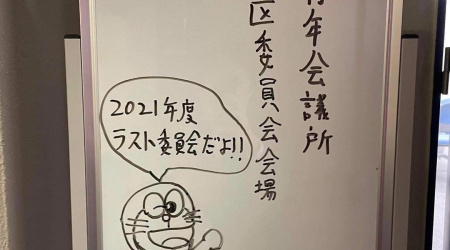 年会議所
区委員会会場
2021年度
ラスト委員会だよ!!